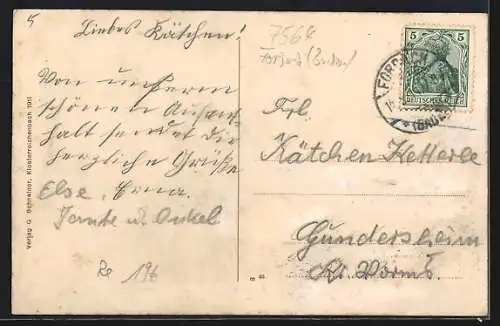 5
Liebes Kätchen!
Von unserm
schönen Aufent-
halt sendet die
herzliche Grüße
Else, Erna.
Tante u. Onkel
Verlag G. Schreiner, Klosterreichenbach 1901
7568
Forbach (Baden)
5 5
DEUTSCHES REICH
FORBACH
(BADEN)
Frl.
Kätchen Ketterle
Gundersheim
Kr. Worms.
196